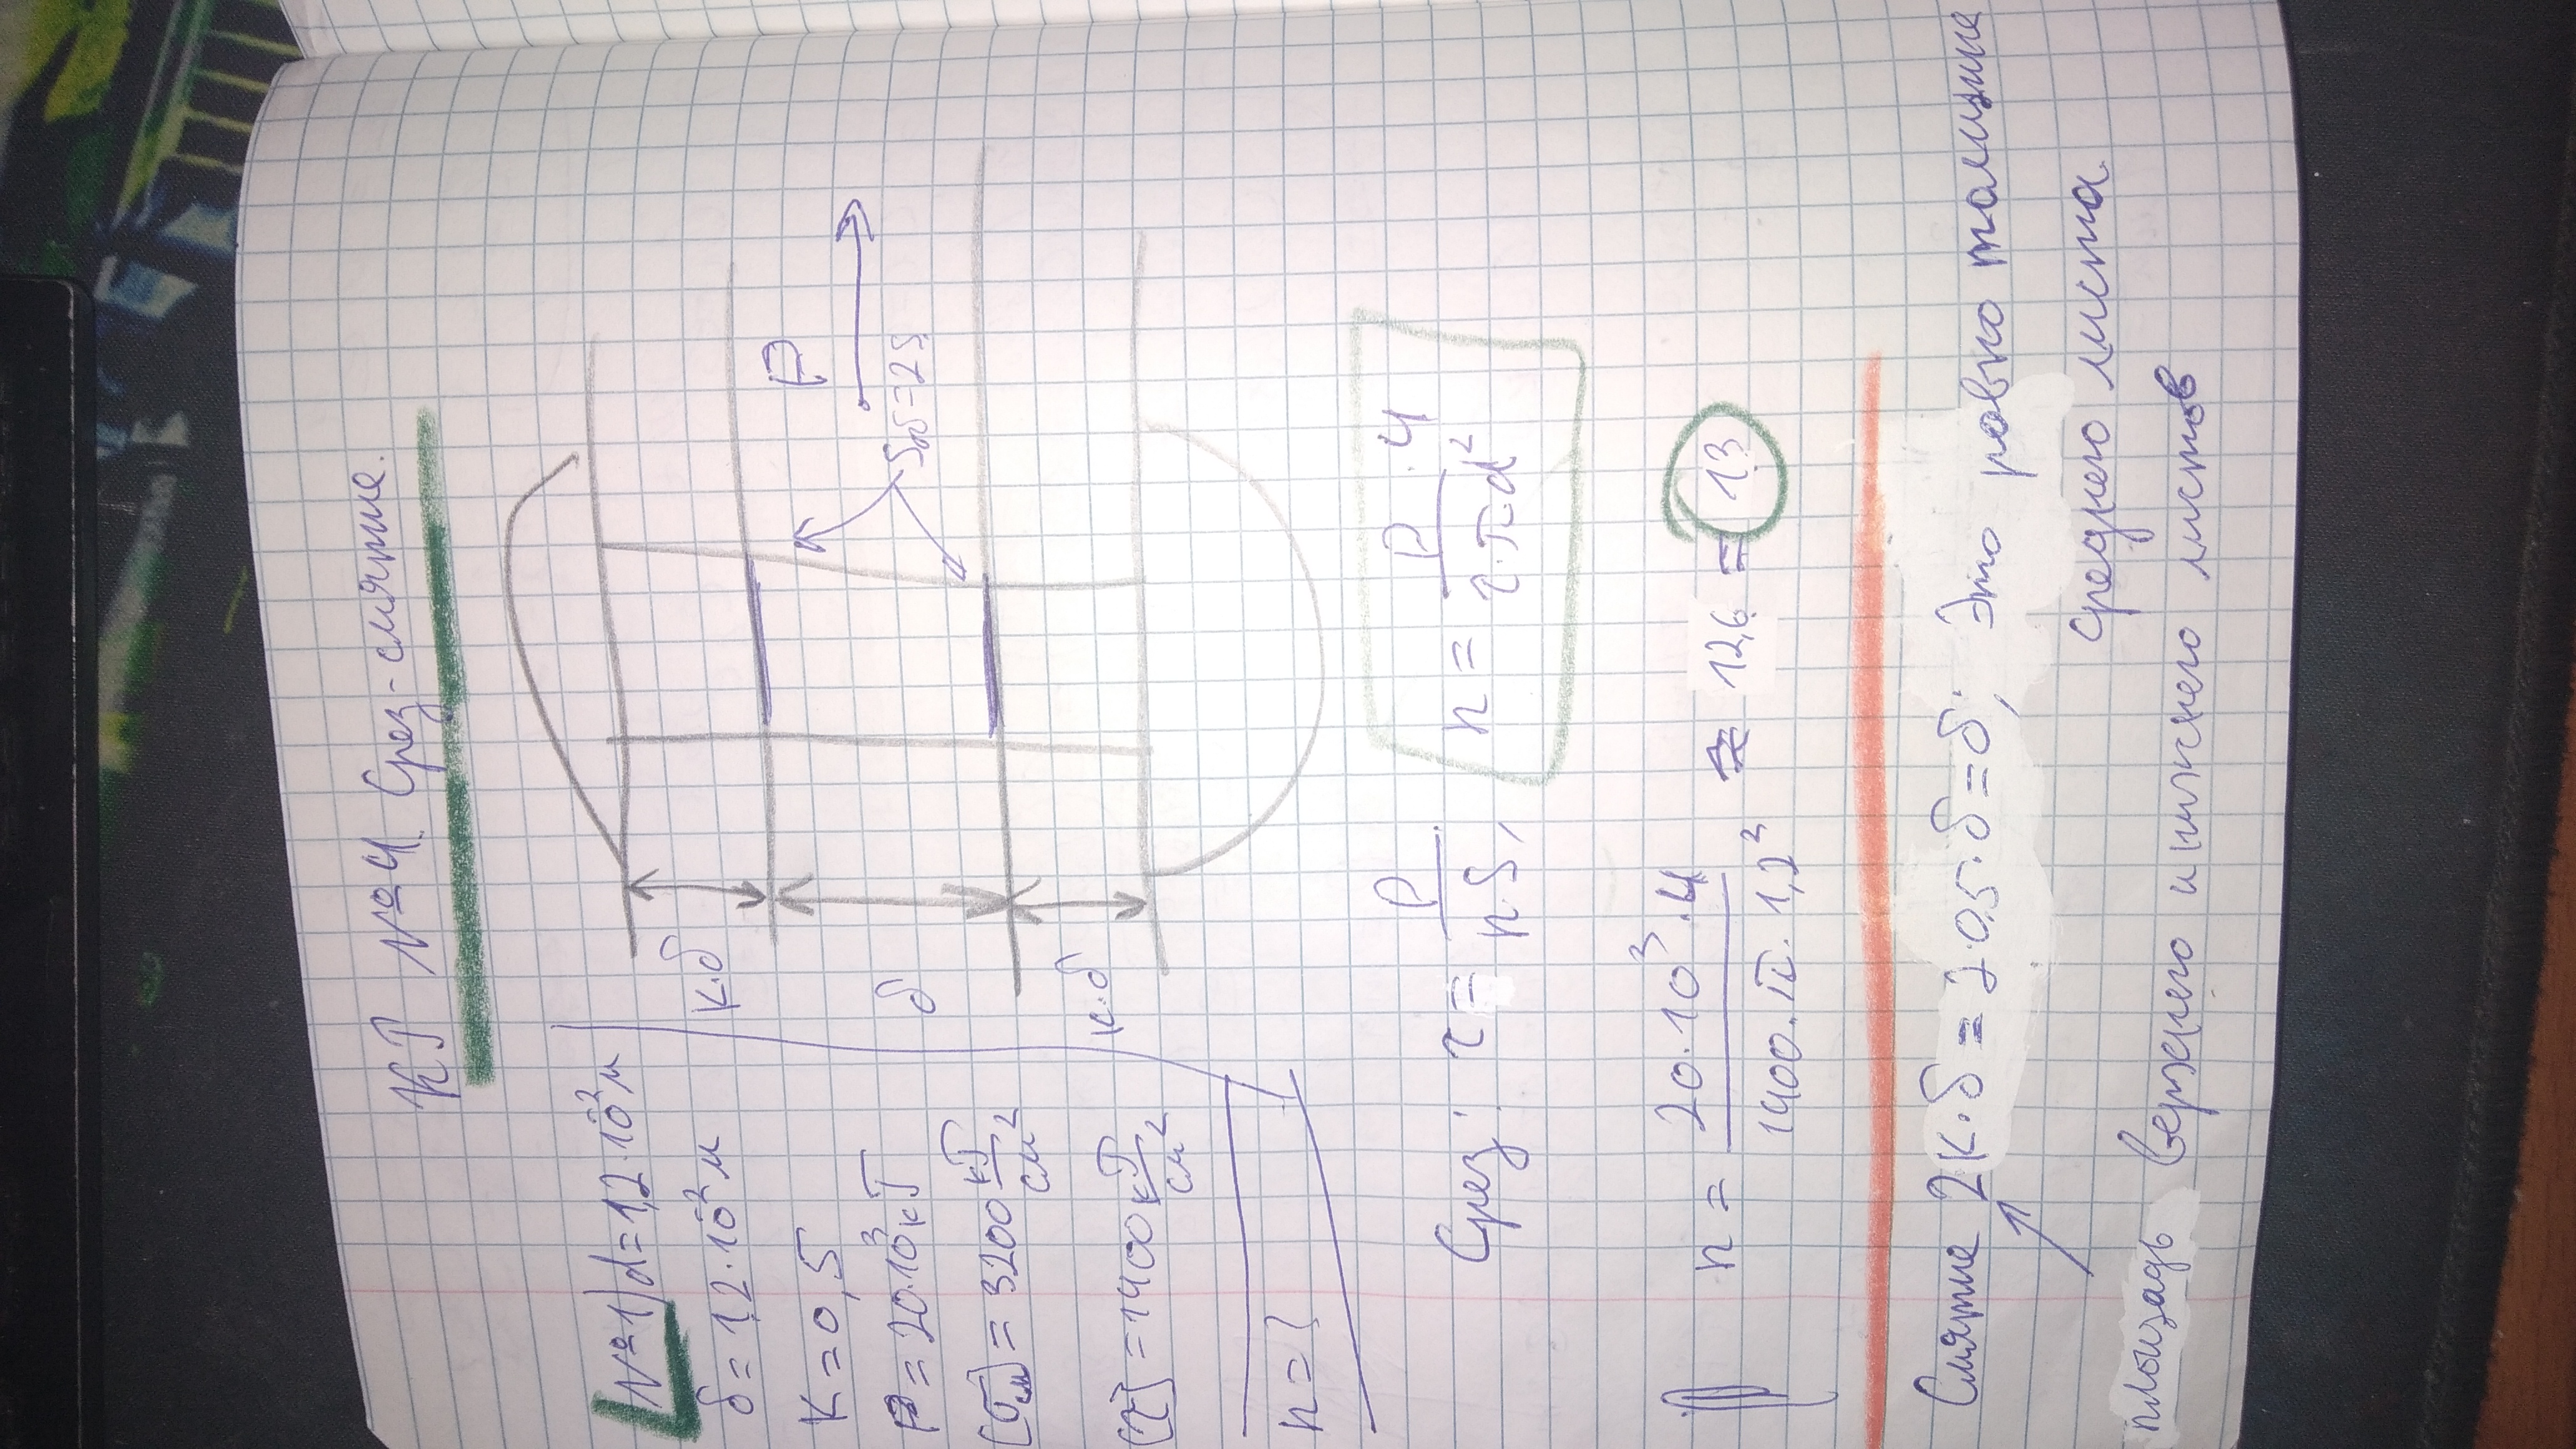 КР №4. Срез-смятие.
№1) d = 1,2·10⁻² м
δ = 1,2·10⁻² м
K = 0,5
P = 20·10³ кГ
[σсм] = 3200 кГ/см²
[τ] = 1400 кГ/см²
n = ?
к·δ
δ
к·δ
P
Sоб = 2S
Срез: τ = P/(n·S), n = P·4/(τ·π·d²)
n = 20·10³·4/(1400·π·1,2²) ≈ 12,6 = 13
Смятие 2к·δ = 2·0,5·δ = δ; Это ровно толщине
среднего листа
площадь верхнего и нижнего листов